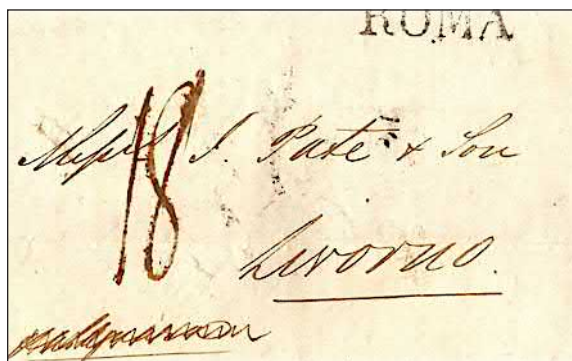 ROMA
18
Messrs J. Pate & Son
Livorno.